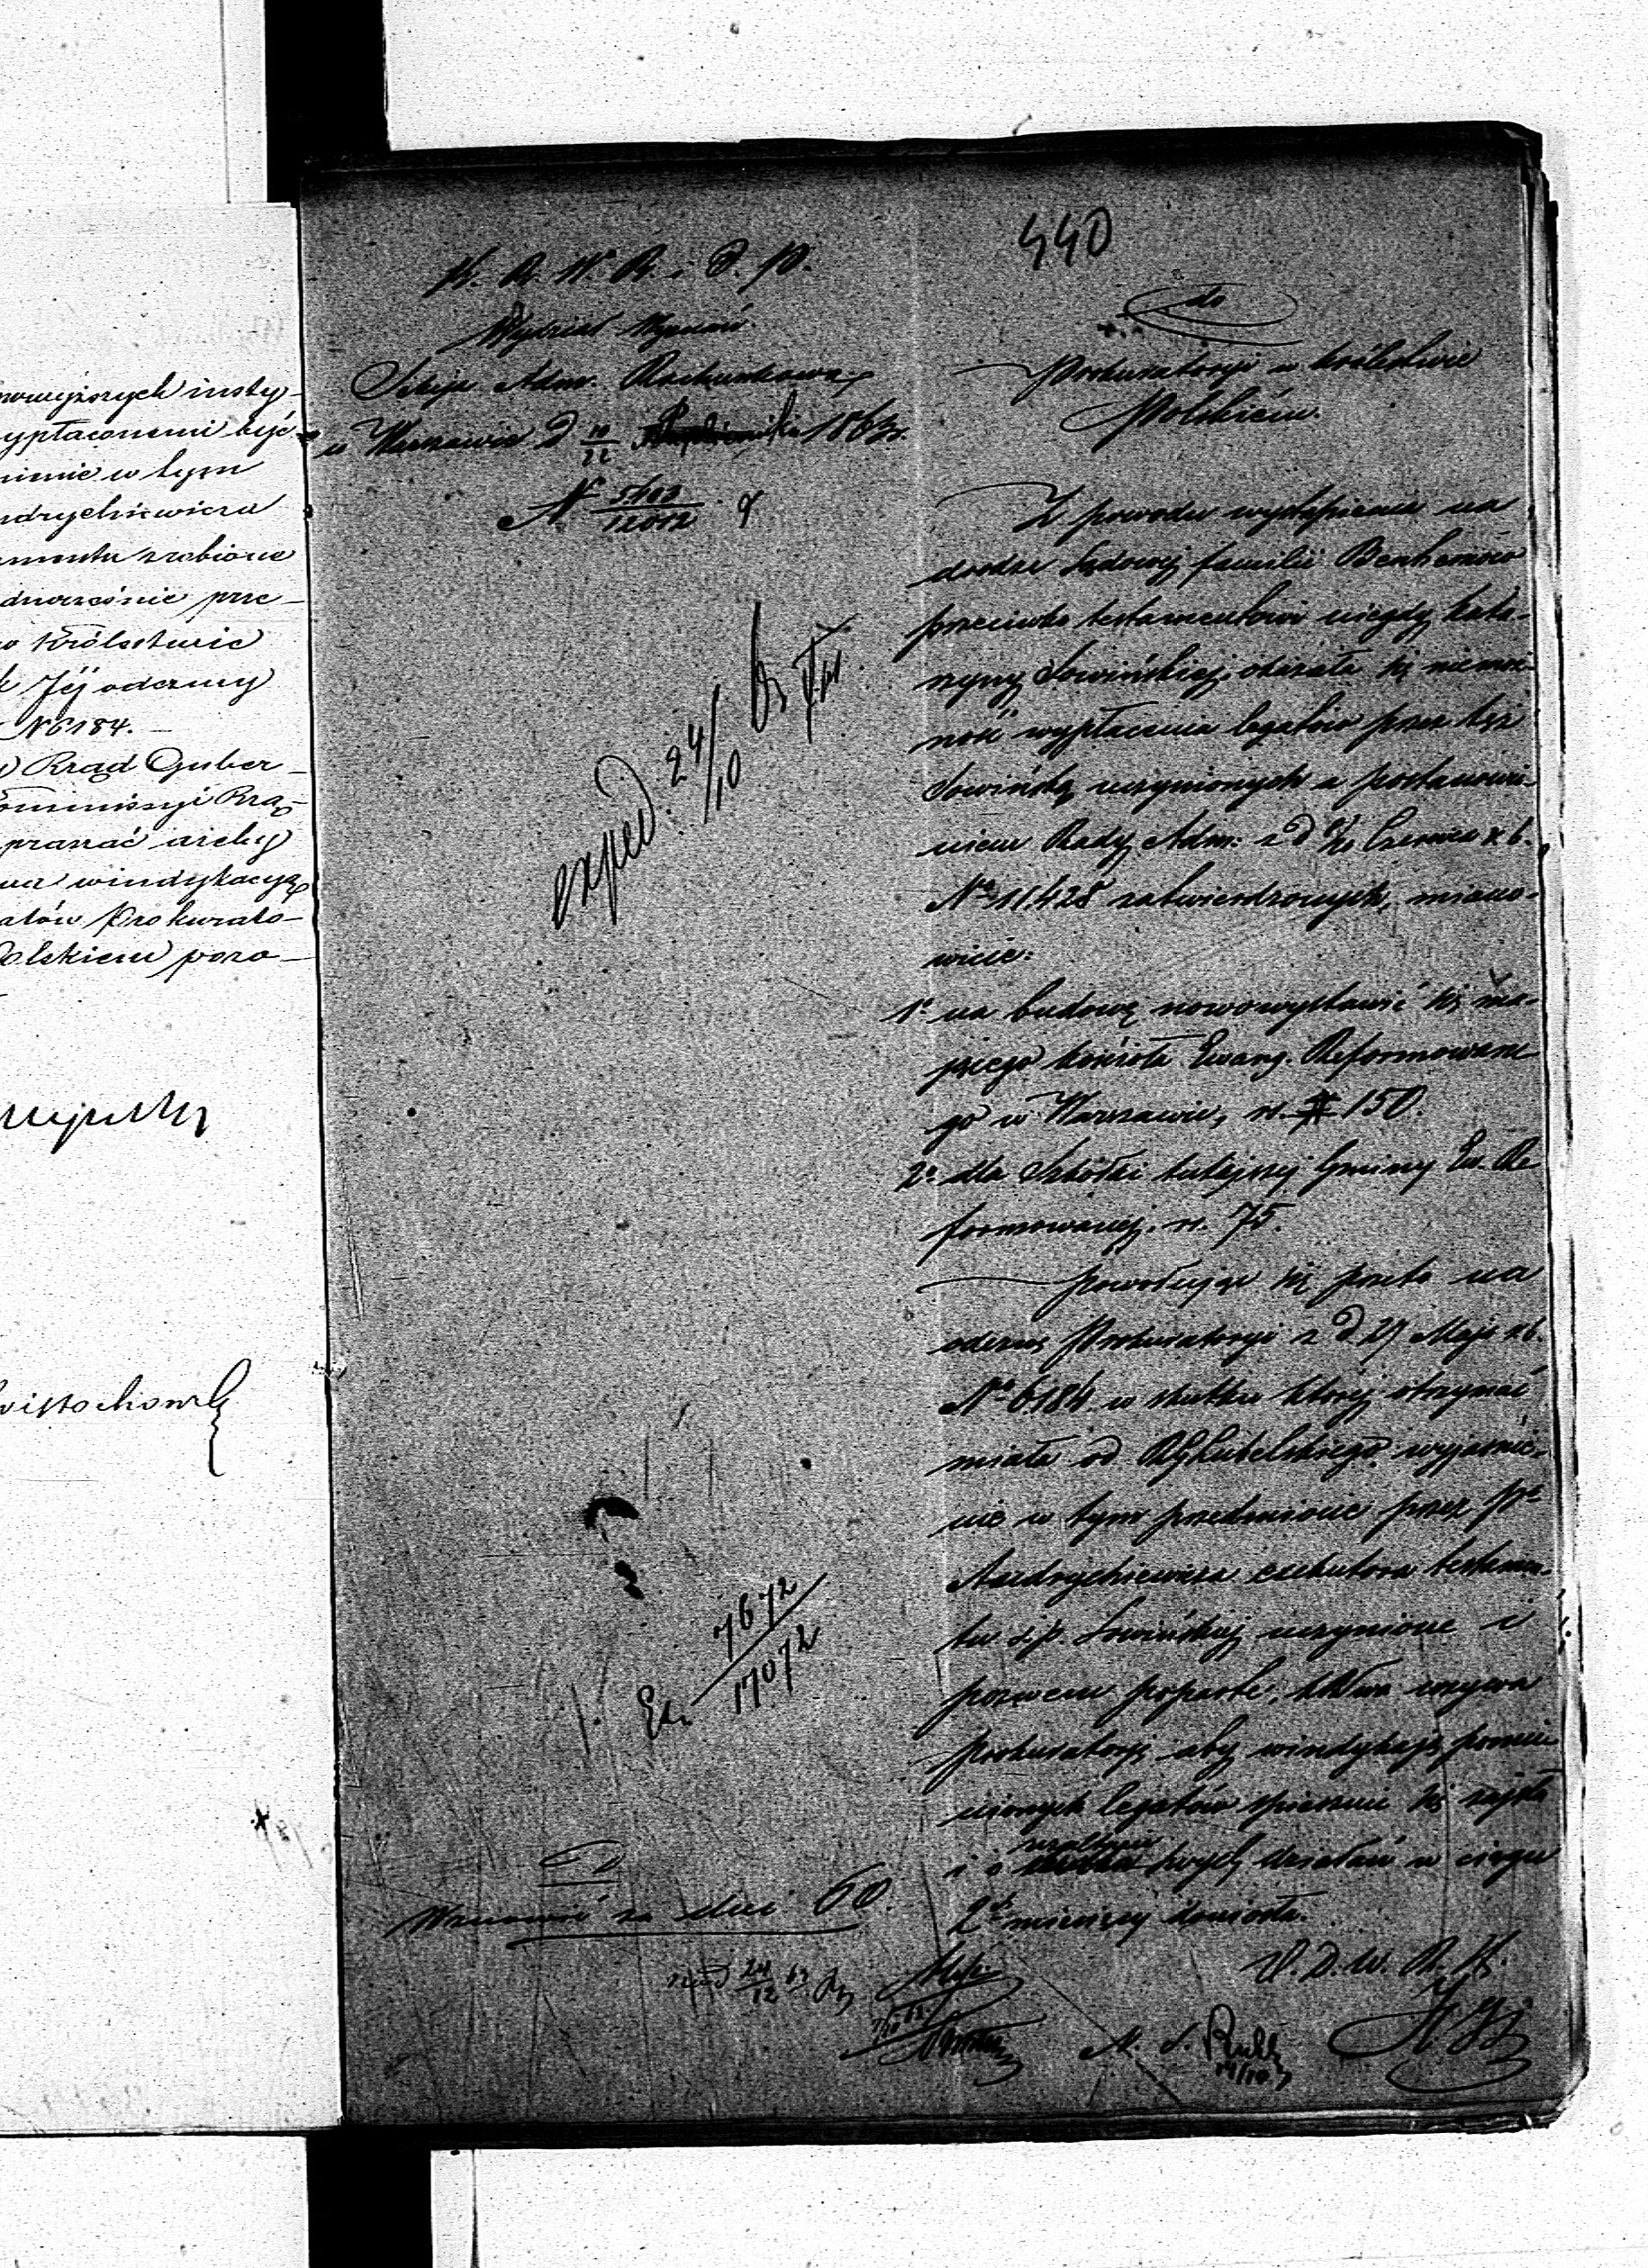 nowyższych insty-
ypłaconemi być
nienie w tym
ndrychiewicza
amentu zrobione
dnocześnie prze-
w Królestwie
k Jéj odezwy
N 6184. —
Rząd Guber-
Kommissyi Rzą-
praszać ażeby
na windykacyą
atów Prokurato-
Polskiem poro-
440
K. R. W. R. i O. P.
Wydział Wyznań.
Sekcja Adm. Rachunkowa
w Warszawie d 10/22 Października 1863 r.
N 5403/12012
exped. 24/10
Ex. 7672/17072
Wznowić za dni 60.
24/12 63
do
Prokuratoryi w Królestwie
Polskiém.
Z powodu wystąpienia na
drodze Sądowéj familii
przeciwko testamentowi niegdy Kata-
rzyny Sowińskiéj, okazała się niemoż-
ność wypłacenia legatów przez tęż
Sowińską uczynionych a postanowie-
niem Rady Adm: z d Czerwca r b.
No 11,428 zatwierdzonych, miano-
wicie:
1o na budowę nowowystawić się ma-
jącego kościoła Ewang. Reformowane-
go w Warszawie, rs. 150.
2o dla Szkółki tutejszéj Gminy Ew. Re
formowanéj, rs. 75.
Powołując się przeto na
odezwę Prokuratoryi z d 27 Maja r b.
No 6184 w skutku któréj otrzymać
miała od RG Lubelskiego wyjaśnie-
nie w tym przedmiocie przez Pa
Andrychiewicza exekutora testamen-
tu ś.p. Sowińskiéj uczynione i
pozwem poparte, wzywa
Prokuratoryę aby windykacyą pomie-
nionych legatów spiesznie się zajęła
i o rezultacie swych działań w ciągu
2ch miesięcy doniosła.